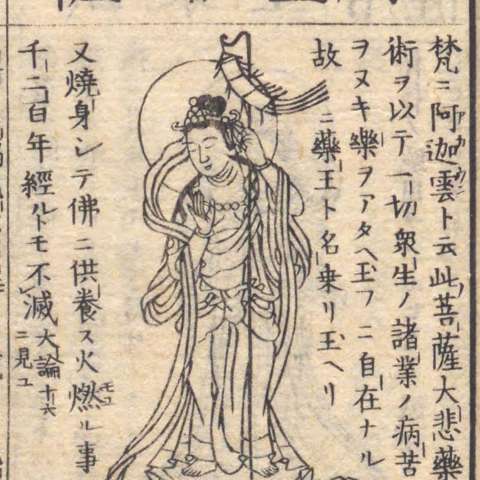 梵ニ阿迦雲ト云此菩薩大悲藥
術ヲ以テ一切衆生ノ諸業ノ病苦
ヲヌキ樂ヲアタヘ玉フニ自在ナル
故ニ藥王ト名乗リ玉ヘリ
又燒身シテ佛ニ供養ス火燃ル事
千二百年經ルトモ不滅大論十六ニ見ユ